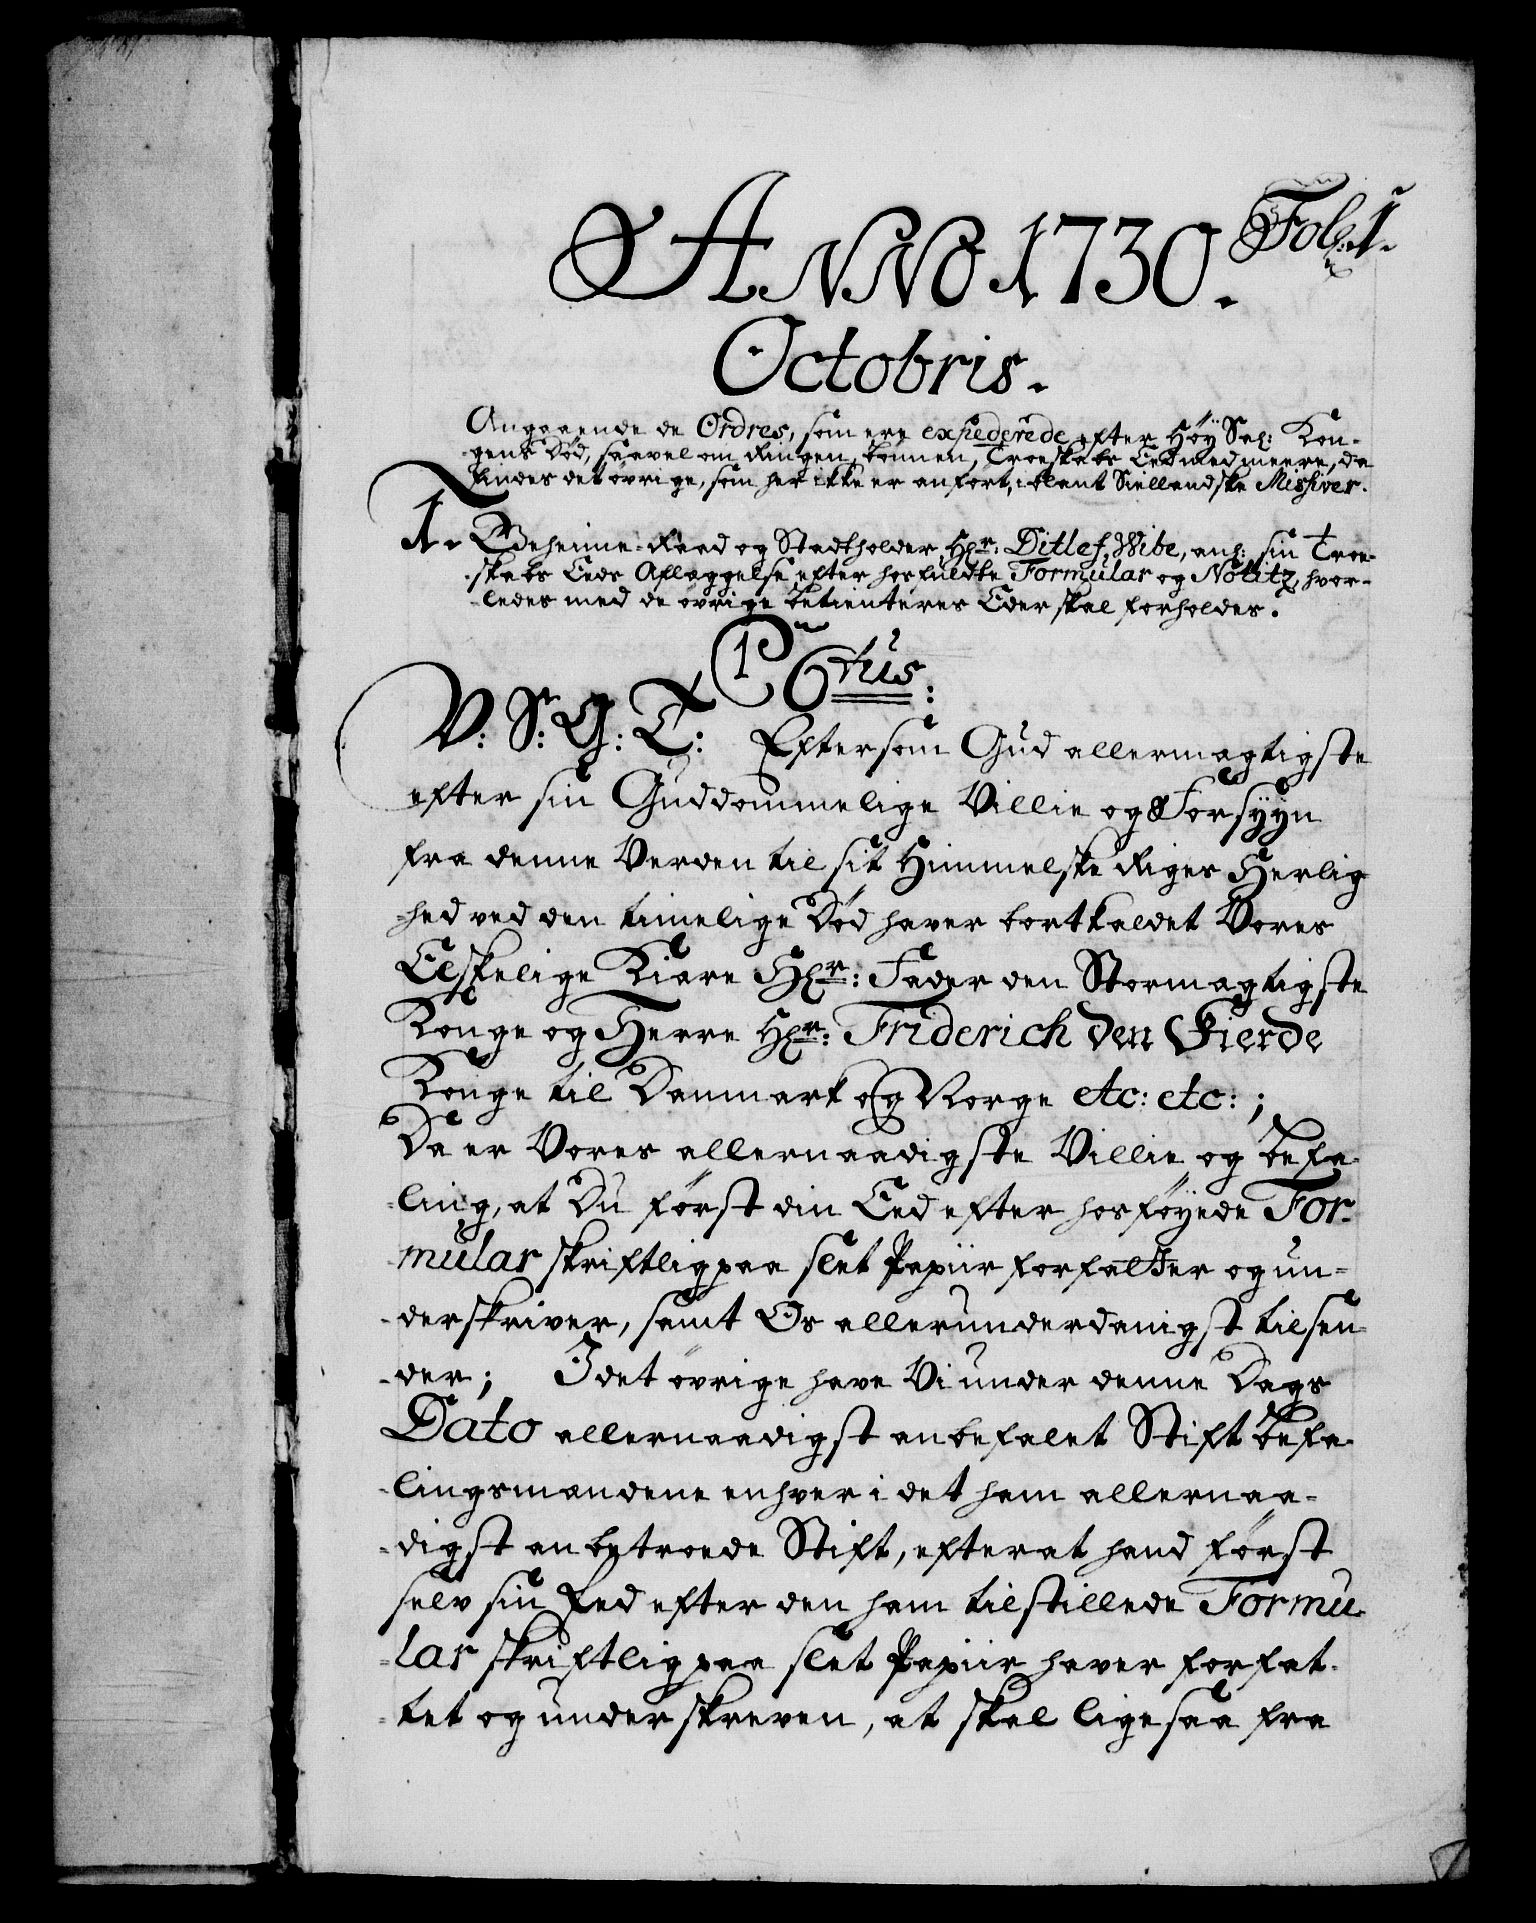 Fol: 1.
ANNO 1730.
Octobris.
Angaaende de Ordres, som ere expederede efter Høy Sal: Kon-
gens Død, saavel om Ringen, bønnen, Troeskabs Eed med meere, da
findes det øvrige, som her ikke er anført, iblant Siellandske Missiver.
1. Geheime-Raad og Stadtholder, Hr: Ditlef Wibe, anl: sin Troe-
skabs Eeds Aflæggelse efter hosfuldte Formular og Notitz, hvor-
ledes med de øvrige betienteres Eder skal forholdes.
V: S: G: T: Eftersom Gud allermagtigste
efter sin Guddommelige Villie og Forsyyn
fra denne Verden til sit Himmelske Riges Herlig
-hed ved den timelige Død haver bortkaldet Vores
Elskelige Kiære Hr: Fader den Stormagtigste
Konge og Herre Hr: Friderich den Fierde
Konge til Danmark og Norge etc: etc: ;
Da er Vores allernaadigste Villie og befa-
-ling, at Du først din Eed efter hosføyede For-
-mular skriftlig paa slet Papiir forfatter og un-
-derskriver, samt Os allerunderdanigst tilsen-
-der; I det øvrige have Vi under denne Dags
Dato allernaadigst anbefalet Stift befa-
-lingsmandene enhver i det ham allernaa-
-digst anbetroede Stift, efter at hand først
selv sin Eed efter den ham tilstillede Formu-
-lar skriftlig paa slet Papiir haver forfat-
-tet og underskreven, at skal ligesaa fra